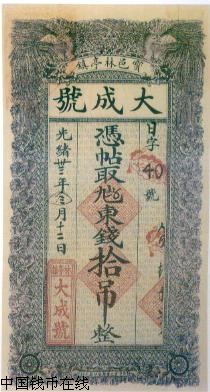 寶邑林亭鎮
大成號
日字40號
憑帖取兌東錢拾吊整
光緒卅三年三月十二日
大成號
中国钱币在线